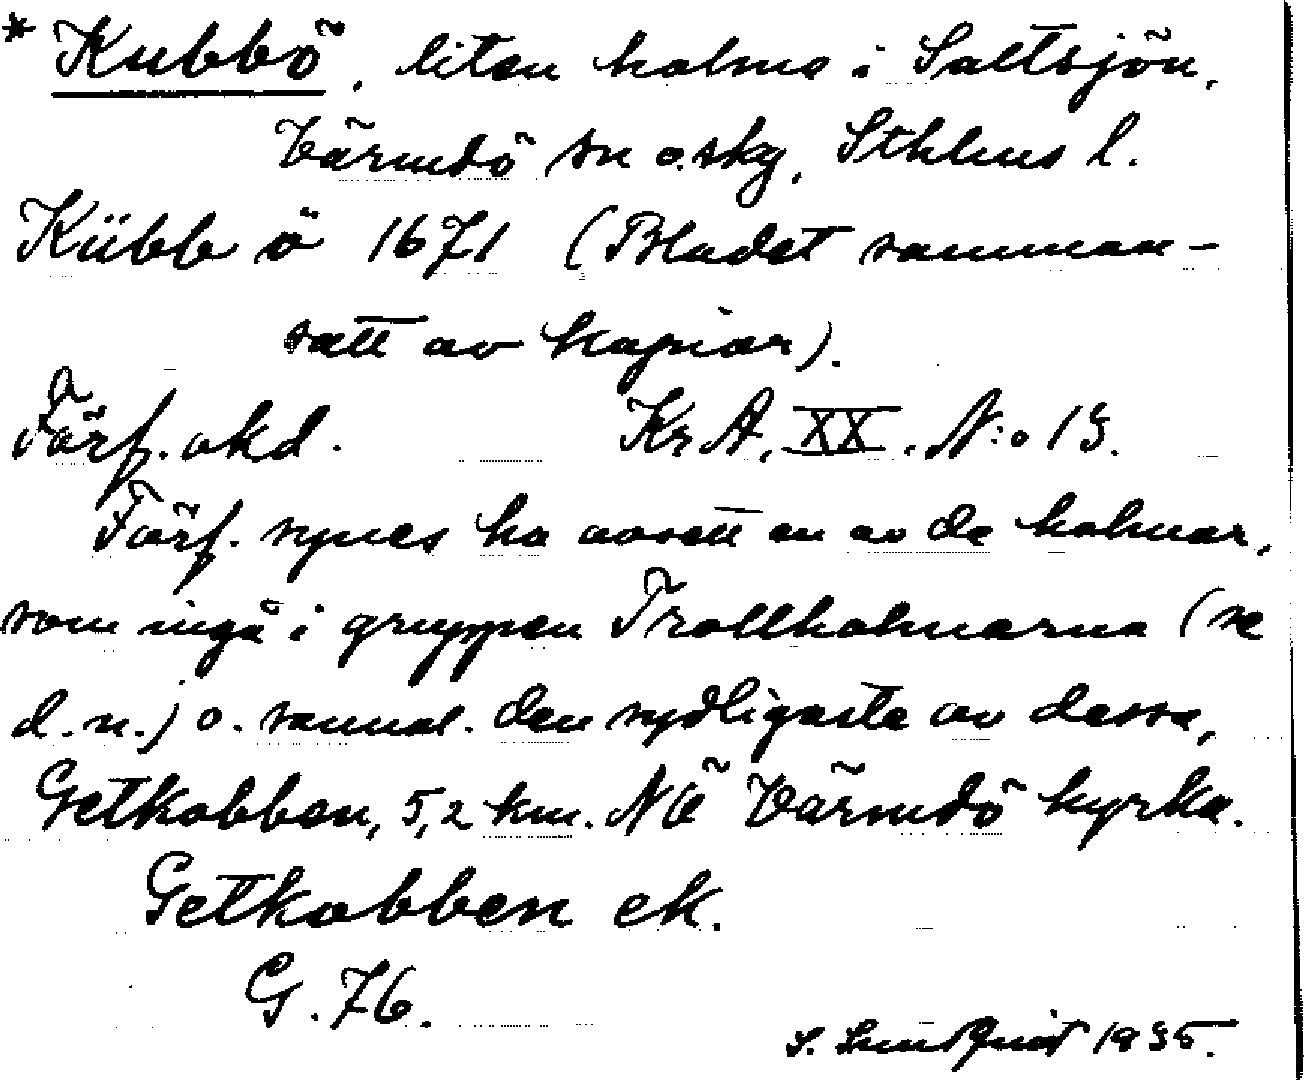 * Kubbö, liten holme i Saltsjön,
Värmdö sn o. sky, Sthlms l.
Kübb ö 1671 (Bladet samman-
satt av kopior).
Förf. okd. Kr A. XX. N:o 13.
Förf. synes ha avsett en av de holmar,
som ingå i gruppen Trollholmarna (se
d. n.) o. sannol. den sydligaste av dessa,
Getkobben, 5,2 km. NÖ Värmdö kyrka.
Getkobben ek.
G. 76.
S. Sundquist 1935.